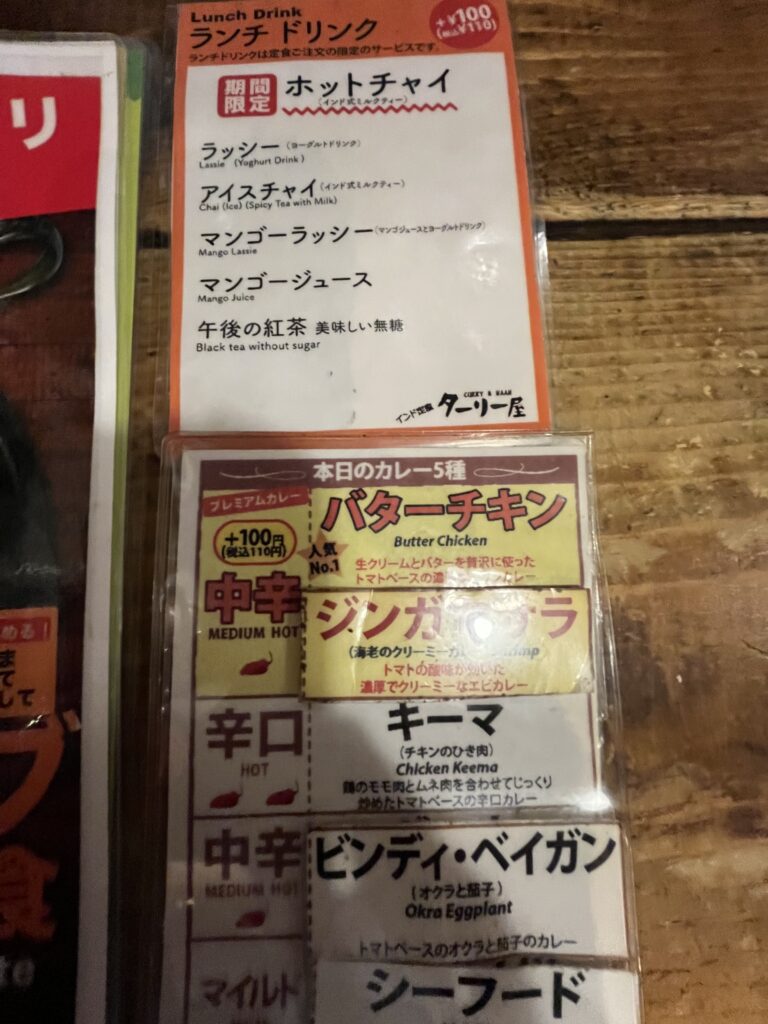 Lunch Drink
ランチ ドリンク
+¥100
(税込¥110)
ランチドリンクは定食ご注文の限定のサービスです。
期間
限定
ホットチャイ
(インド式ミルクティー)
ラッシー (ヨーグルトドリンク)
Lassie (Yoghurt Drink )
アイスチャイ (インド式ミルクティー)
Chai (Ice) (Spicy Tea with Milk)
マンゴーラッシー (マンゴジュースとヨーグルトドリンク)
Mango Lassie
マンゴージュース
Mango Juice
午後の紅茶 美味しい無糖
Black tea without sugar
CURRY & NAAN
インド定食 ターリー屋
リ
本日のカレー5種
プレミアムカレー
+100円
(税込110円)
中辛
MEDIUM HOT
人気
No.1
バターチキン
Butter Chicken
生クリームとバターを贅沢に使った
トマトベースの濃
カレー
ジンガ
ラ
(海老のクリーミー
トマトの酸味が効いた
濃厚でクリーミーなエビカレー
辛口
HOT
キーマ
(チキンのひき肉)
Chicken Keema
鶏のモモ肉とムネ肉を合わせてじっくり
炒めたトマトベースの辛口カレー
中辛
MEDIUM HOT
ビンディ・ベイガン
(オクラと茄子)
Okra Eggplant
トマトベースのオクラと茄子のカレー
マイルド
シーフード
める!
ま
て
して
ブ
食
te